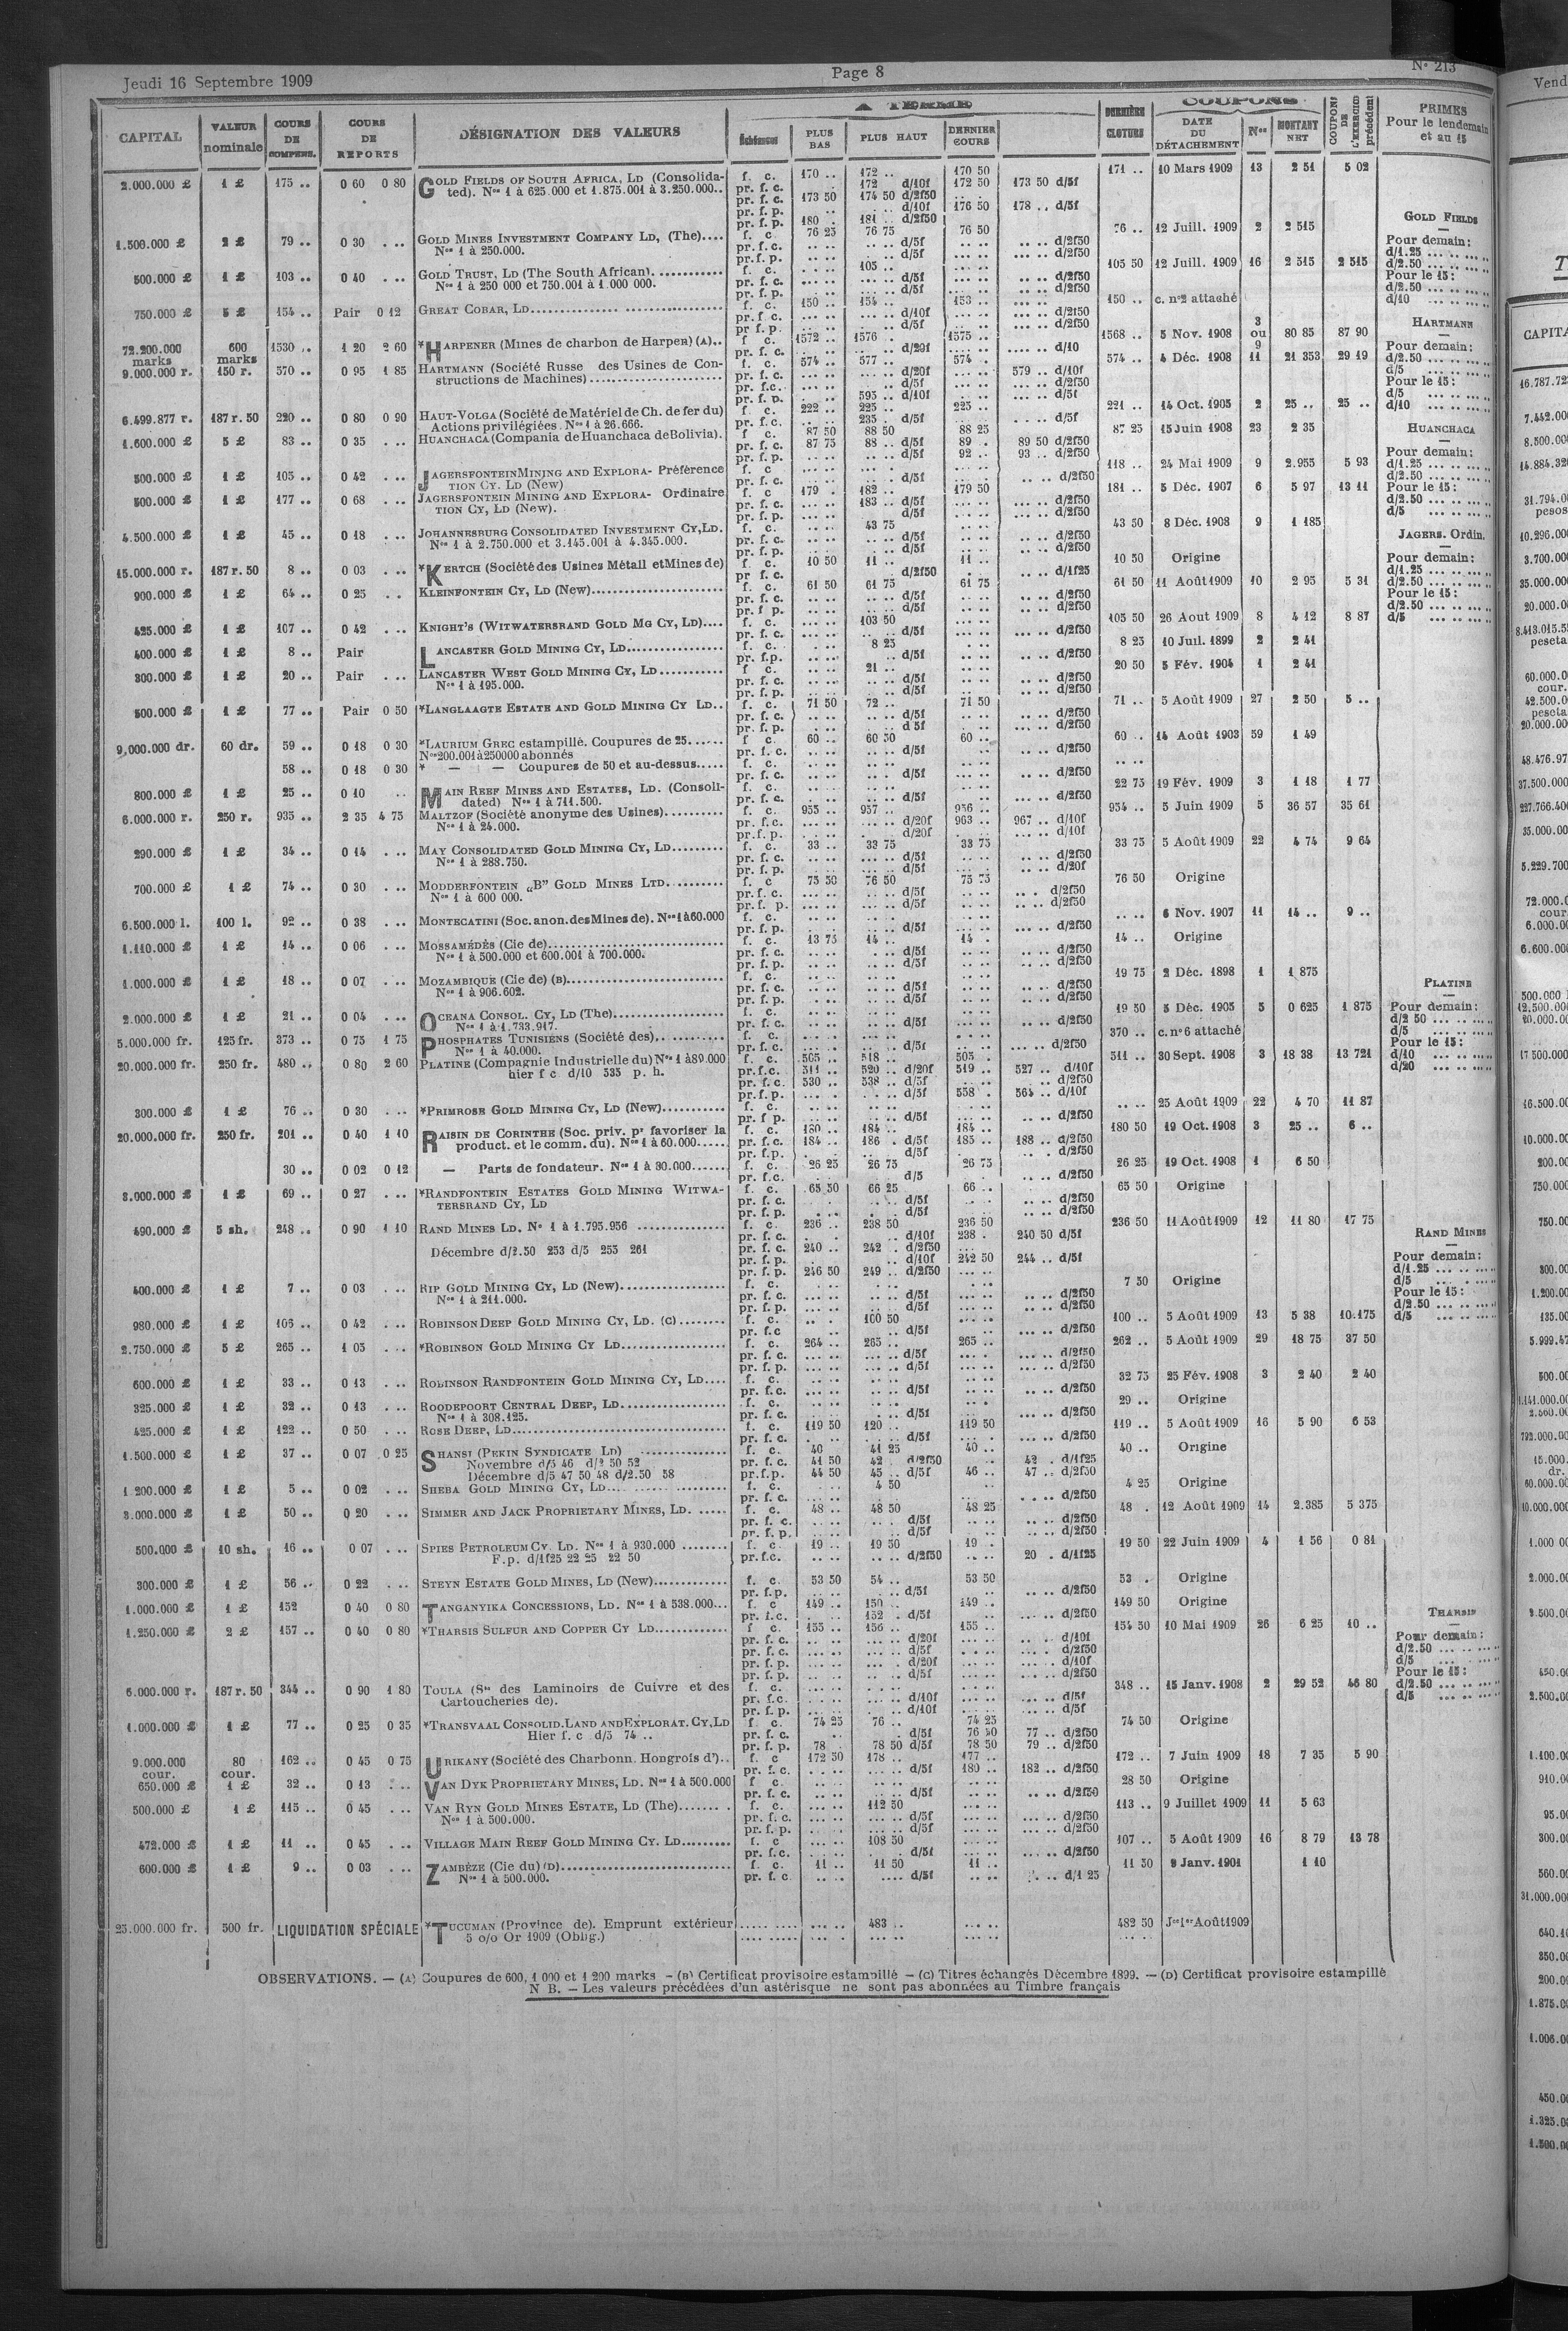 Jeudi 16 Septembre 1909
Page 8
N° 213
CAPITAL
VALEUR nominale
COURS DE COMPENS.
COURS DE REPORTS
DÉSIGNATION DES VALEURS
A TERME
Échéances
PLUS BAS
PLUS HAUT
DERNIER COURS
DERNIÈRE CLOTURE
COUPONS
DATE DU DÉTACHEMENT
Nos
MONTANT NET
COUPONS DE L'EXERCICE précédent
PRIMES Pour le lendemain et au 15
2.000.000 £ 1 £ 175 .. 0 60 0 80 GOLD FIELDS OF SOUTH AFRICA, LD (Consolida- f. c. 170 .. 172 .. 170 50 171 .. 10 Mars 1909 13 2 51 5 02
ted). Nos 1 à 625.000 et 1.875.001 à 3.250.000.. pr. f. c. 172 d/10f 172 50 173 50 d/5f
pr. f. c. 173 50 174 50 d/2f50
pr. f. p. d/10f 176 50 178 .. d/5f
pr. f. p. 180 . 181 .. d/2f50
1.500.000 £ 2 £ 79 .. 0 30 GOLD MINES INVESTMENT COMPANY LD, (The).... f. c 76 25 76 75 76 50 76 .. 12 Juill. 1909 2 2 515
Nos 1 à 250.000. pr. f. c. d/5f d/2f50
pr. f. p. d/5f d/2f50
500.000 £ 1 £ 103 .. 0 40 GOLD TRUST, LD (The South African). f. c. 105 .. 105 50 12 Juill. 1909 16 2 515 2 515
Nos 1 à 250 000 et 750.001 à 1 000 000. pr. f. c. d/5f d/2f50
pr. f. p. d/5f d/2f50
750.000 £ 5 £ 154 .. Pair 0 12 GREAT COBAR, LD f. c. 150 .. 154 .. 153 .. 150 .. c. n°2 attaché
pr. f. c. d/10f d/2f50
pr f. p. d/5f d/2f50
72.200.000 marks 600 marks 1530 .. 1 20 2 60 *HARPENER (Mines de charbon de Harpen) (A).. f c. 1572 .. 1576 . 1575 .. 1568 .. 5 Nov. 1908 3 ou 9 80 85 87 90
pr. f. c. d/20f d/10
9.000.000 r. 150 r. 570 .. 0 95 1 85 HARTMANN (Société Russe des Usines de Con- f. c. 574 .. 577 .. 574 . 574 .. 4 Déc. 1908 11 21 353 29 19
structions de Machines) pr. f. c. d/20f 579 .. d/10f
pr. f.c. d/5f d/2f50
pr. f. p. 595 .. d/10f d/5f
6.499.877 r. 187 r. 50 220 .. 0 80 0 90 HAUT-VOLGA (Société de Matériel de Ch. de fer du) f c. 222 .. 225 .. 225 .. 221 .. 14 Oct. 1905 2 25 .. 25 ..
Actions privilégiées. Nos 1 à 26.666. pr. f. c. 235 . d/5f d/5f
1.600.000 £ 5 £ 83 .. 0 35 HUANCHACA (Compania de Huanchaca de Bolivia). f c. 87 50 88 50 88 25 87 25 15 Juin 1908 23 2 35
pr. f. c. 87 75 88 .. d/5f 89 . 89 50 d/2f50
pr. f. p. d/5f 92 .. 93 .. d/2f50
500.000 £ 1 £ 105 .. 0 42 JAGERSFONTEIN MINING AND EXPLORA- Préférence f. c 118 .. 24 Mai 1909 9 2.955 5 93
TION CY. LD (New) pr. f. c. d/5f d/2f50
500.000 £ 1 £ 177 .. 0 68 JAGERSFONTEIN MINING AND EXPLORA- Ordinaire f. c 179 . 182 .. 179 50 181 .. 5 Déc. 1907 6 5 97 13 11
TION CY, LD (New). pr. f. c. 183 .. d/5f d/2f50
pr. f. p. d/5f d/2f50
4.500.000 £ 1 £ 45 .. 0 18 JOHANNESBURG CONSOLIDATED INVESTMENT CY, LD. f. c. 43 75 43 50 8 Déc. 1908 9 1 185
Nos 1 à 2.750.000 et 3.145.001 à 4.345.000. pr. f. c. d/5f d/2f50
pr. f. p. d/5f d/2f50
15.000.000 r. 187 r. 50 8 .. 0 03 *KERTCH (Société des Usines Métall et Mines de) f. c. 10 50 11 .. 11 .. 10 50 Origine
pr f. c. d/2f50 d/1f25
900.000 £ 1 £ 64 .. 0 25 KLEINFONTEIN CY, LD (New) f. c. 61 50 61 75 61 75 61 50 11 Août 1909 10 2 95 5 31
pr. f. c. d/5f d/2f50
pr. f p. d/5f d/2f50
425.000 £ 1 £ 107 .. 0 42 KNIGHT'S (WITWATERSRAND GOLD MG CY, LD).... f. c. 103 50 105 50 26 Aout 1909 8 4 12 8 87
pr. f. c. d/5f d/2f50
400.000 £ 1 £ 8 .. Pair LANCASTER GOLD MINING CY, LD f. c. 8 25 8 25 10 Juil. 1899 2 2 41
pr. f.p. d/5f d/2f50
300.000 £ 1 £ 20 .. Pair LANCASTER WEST GOLD MINING CY, LD f c. 21 .. 20 50 5 Fév. 1904 1 2 41
Nos 1 à 195.000. pr. f. c. d/5f d/2f50
pr. f. p. d/5f d/2f50
500.000 £ 1 £ 77 .. Pair 0 50 *LANGLAAGTE ESTATE AND GOLD MINING CY LD.. f. c. 71 50 72 .. 71 50 71 .. 5 Août 1909 27 2 50 5 ..
pr. f. c. d/5f d/2f50
pr. f. p. d 5f d/2f50
9,000.000 dr. 60 dr. 59 .. 0 18 0 30 *LAURIUM GREC estampillé. Coupures de 25 f c. 60 .. 60 50 60 .. 60 .. 14 Août 1903 59 1 49
Nos 200.001 à 250000 abonnés pr. f. c. d/5f d/2f50
58 .. 0 18 0 30 * — — Coupures de 50 et au-dessus..... f. c.
pr. f. c. d/5f d/2f50
800.000 £ 1 £ 25 .. 0 10 MAIN REEF MINES AND ESTATES, LD. (Consoli- f. c. 22 75 19 Fév. 1909 3 1 18 1 77
dated) Nos 1 à 711.500. pr. f. c. d/5f d/2f50
6.000.000 r. 250 r. 935 .. 2 35 4 75 MALTZOF (Société anonyme des Usines) f. c. 955 .. 957 .. 956 .. 954 .. 5 Juin 1909 5 36 57 35 61
Nos 1 à 24.000. pr. f. c. d/20f 963 .. 967 .. d/10f
pr. f. p. d/20f d/10f
290.000 £ 1 £ 34 .. 0 14 MAY CONSOLIDATED GOLD MINING CY, LD f. c. 33 .. 33 75 33 75 33 75 5 Août 1909 22 4 74 9 64
Nos 1 à 288.750. pr. f. c. d/5f d/2f50
pr. f. p. d/5f d/20f
700.000 £ 1 £ 74 .. 0 30 MODDERFONTEIN „B" GOLD MINES LTD. f. c 75 50 76 50 75 75 76 50 Origine
Nos 1 à 600 000. pr. f. c. d/5f d/2f50
pr. f. p. d/5f d/2f50
6.500.000 l. 100 l. 92 .. 0 38 MONTECATINI (Soc. anon. des Mines de). Nos 1 à 60.000 f. c. 6 Nov. 1907 11 14 .. 9 ..
pr. f. p. d/5f d/2f50
1.110.000 £ 1 £ 14 .. 0 06 MOSSAMÉDÈS (Cie de) f. c. 13 75 14 .. 14 . 14 .. Origine
Nos 1 à 500.000 et 600.001 à 700.000. pr. f. c. d/5f d/2f50
pr. f. p. d/5f d/2f50
1.000.000 £ 1 £ 18 .. 0 07 MOZAMBIQUE (Cie de) (B) f. c. 19 75 2 Déc. 1898 1 1 875
Nos 1 à 906.602. pr. f. c. d/5f d/2f50
pr. f. p. d/5f d/2f50
2.000.000 £ 1 £ 21 .. 0 04 OCEANA CONSOL. CY, LD (The) f. c. 19 50 5 Déc. 1905 5 0 625 1 875
Nos 1 à 1.733.917. pr. f. c. d/5f d/2f50
5.000.000 fr. 125 fr. 373 .. 0 75 1 75 PHOSPHATES TUNISIENS (Société des) f. c. 370 .. c. n° 6 attaché
Nos 1 à 40.000. pr. f. c. d/5f d/2f50
20.000.000 fr. 250 fr. 480 .. 0 80 2 60 PLATINE (Compagnie Industrielle du) Nos 1 à 89.000 f. c. 505 .. 518 .. 505 . 511 .. 30 Sept. 1908 3 18 38 13 721
hier f c d/10 535 p. h. pr.f.c. 511 .. 520 .. d/20f 519 .. 527 .. d/10f
pr. f. c. 530 .. 538 .. d/5f d/2f50
pr. f. p. d/5f 558 . 564 .. d/10f
300.000 £ 1 £ 76 .. 0 30 *PRIMROSE GOLD MINING CY, LD (New) f. c. 25 Août 1909 22 4 70 11 87
pr. f p. d/5f d/2f50
20.000.000 fr. 250 fr. 201 .. 0 40 1 10 RAISIN DE CORINTHE (Soc. priv. pr favoriser la f. c. 180 .. 184 .. 184 .. 180 50 19 Oct. 1908 3 25 .. 6 ..
product. et le comm. du). Nos 1 à 60.000 pr. f. c. 184 .. 186 . d/5f 185 .. 188 .. d/2f50
pr. f.p. d/5f d/2f50
30 .. 0 02 0 12 — Parts de fondateur. Nos 1 à 30.000 f. c. 26 25 26 75 26 75 26 25 19 Oct. 1908 1 6 50
pr. f.c. d/5 d/2f50
3.000.000 £ 1 £ 69 .. 0 27 *RANDFONTEIN ESTATES GOLD MINING WITWA- f. c. 65 50 66 25 66 .. 65 50 Origine
TERSRAND CY, LD pr. f. c. d/5f d/2f50
pr. f. p. d/5f d/2f50
490.000 £ 5 sh. 248 .. 0 90 1 10 RAND MINES LD. N° 1 à 1.795.956 f. c. 236 .. 238 50 236 50 236 50 11 Août 1909 12 11 80 17 75
pr. f. c. d/10f 238 . 240 50 d/5f
Décembre d/2.50 253 d/5 255 261 pr. f. c. 240 .. 242 . d/2f50
pr. f. p. d/10f 242 50 244 .. d/5f
pr. f. p. 246 50 249 .. d/2f50
400.000 £ 1 £ 7 .. 0 03 RIP GOLD MINING CY, LD (New) f. c. 7 50 Origine
Nos 1 à 211.000. pr. f. c. d/5f d/2f50
pr. f. p. d/5f d/2f50
980.000 £ 1 £ 106 .. 0 42 ROBINSON DEEP GOLD MINING CY, LD. (C) f. c. 100 50 100 .. 5 Août 1909 13 5 38 10.175
pr. f.c d/5f d/2f50
2.750.000 £ 5 £ 265 .. 1 05 *ROBINSON GOLD MINING CY LD f. c. 264 .. 265 .. 265 .. 262 .. 5 Août 1909 29 18 75 37 50
pr. f. c. d/5f d/2f50
pr. f. p. d/5f d/2f50
600.000 £ 1 £ 33 .. 0 13 ROBINSON RANDFONTEIN GOLD MINING CY, LD.... f. c. 32 75 25 Fév. 1908 3 2 40 2 40
pr. f.c. d/5f d/2f50
325.000 £ 1 £ 32 .. 0 13 ROODEPOORT CENTRAL DEEP, LD f. c. 29 .. Origine
Nos 1 à 308.125. pr. f. c. d/5f d/2f50
425.000 £ 1 £ 122 .. 0 50 ROSE DEEP, LD f. c. 119 50 120 .. 119 50 119 .. 5 Août 1909 16 5 90 6 53
pr. f. c. d/5f d/2f50
1.500.000 £ 1 £ 37 .. 0 07 0 25 SHANSI (PEKIN SYNDICATE LD) f. c. 40 41 25 40 .. 40 .. Origine
Novembre d/5 46 d/2 50 52 pr. f. c. 41 50 42 . d/2f50 42 . d/1f25
Décembre d/5 47 50 48 d/2.50 58 pr.f.p. 44 50 45 .. d/5f 46 .. 47 .. d/2f50
1 200.000 £ 1 £ 5 .. 0 02 SHEBA GOLD MINING CY, LD f. c. 4 50 4 25 Origine
pr. f. c. d/2f50
3.000.000 £ 1 £ 50 .. 0 20 SIMMER AND JACK PROPRIETARY MINES, LD. f. c. 48 .. 48 50 48 25 48 . 12 Août 1909 14 2.385 5 375
pr. f. c. d/5f d/2f50
pr. f. p. d/5f d/2f50
500.000 £ 10 sh. 16 .. 0 07 SPIES PETROLEUM CY. LD. Nos 1 à 930.000 f. c 19 .. 19 50 19 . 19 50 22 Juin 1909 4 1 56 0 81
F.p. d/1f25 22 25 22 50 pr. f.c. d/2f50 20 . d/1f25
300.000 £ 1 £ 56 .. 0 22 STEYN ESTATE GOLD MINES, LD (New) f. c. 53 50 54 .. 53 50 53 . Origine
pr. f.p. d/5f d/2f50
1.000.000 £ 1 £ 152 0 40 0 80 TANGANYIKA CONCESSIONS, LD. Nos 1 à 538.000... f. c 149 .. 150 .. 149 .. 149 50 Origine
pr. f.c. 152 . d/5f d/2f50
1.250.000 £ 2 £ 157 .. 0 40 0 80 *THARSIS SULFUR AND COPPER CY LD f c. 155 .. 156 .. 155 .. 154 50 10 Mai 1909 26 6 25 10 ..
pr. f. c. d/20f d/10f
pr. f. c. d/5f d/2f50
pr. f. p. d/20f d/10f
pr. f. p. d/5f d/2f50
6.000.000 r. 187 r. 50 344 .. 0 90 1 80 TOULA (Sté des Laminoirs de Cuivre et des f. c. 348 .. 15 Janv. 1908 2 29 52 46 80
Cartoucheries de). pr. f.c. d/10f d/5f
pr. f. p. d/10f d/5f
1.000.000 £ 1 £ 77 .. 0 25 0 35 *TRANSVAAL CONSOLID. LAND AND EXPLORAT. CY, LD f c. 74 25 76 .. 74 25 74 50 Origine
Hier f. c d/5 74 .. pr. f. c. d/5f 76 50 77 .. d/2f50
pr. f. p. 78 . 78 50 d/5f 78 50 79 .. d/2f50
9.000.000 cour. 80 cour. 162 .. 0 45 0 75 URIKANY (Société des Charbonn. Hongrois d').. f. c 172 50 178 .. 177 .. 172 .. 7 Juin 1909 18 7 35 5 90
pr. f. c. d/5f 180 .. 182 .. d/2f50
650.000 £ 1 £ 32 .. 0 13 VAN DYK PROPRIETARY MINES, LD. Nos 1 à 500.000 f c. 28 50 Origine
pr. f. c. d/5f d/2f50
500.000 £ 1 £ 115 .. 0 45 VAN RYN GOLD MINES ESTATE, LD (The) f. c. 112 50 113 .. 9 Juillet 1909 11 5 63
Nos 1 à 500.000. pr. f. c. d/5f d/2f50
pr. f. p. d/5f d/2f50
472.000 £ 1 £ 11 .. 0 45 VILLAGE MAIN REEF GOLD MINING CY. LD f. c 108 50 107 .. 5 Août 1909 16 8 79 13 78
pr. f.c. d/5f d/2f50
600.000 £ 1 £ 9 .. 0 03 ZAMBÈZE (Cie du) (D) f. c. 11 .. 11 50 11 .. 11 50 9 Janv. 1901 1 10
Nos 1 à 500.000. pr. f. c d/5f d/1 25
25.000.000 fr. 500 fr. LIQUIDATION SPÉCIALE *TUCUMAN (Province de). Emprunt extérieur 483 .. 482 50 Jce 1er Août 1909
5 o/o Or 1909 (Oblig.)
GOLD FIELDS
Pour demain:
d/1.25
d/2.50
Pour le 15:
d/2.50
d/10
HARTMANN
Pour demain:
d/2.50
d/5
Pour le 15:
d/5
d/10
HUANCHACA
Pour demain:
d/1.25
d/2.50
Pour le 15:
d/2.50
d/5
JAGERS. Ordin.
Pour demain:
d/1.25
d/2.50
Pour le 15:
d/2.50
d/5
PLATINE
Pour demain:
d/2 50
d/5
Pour le 15:
d/10
d/20
RAND MINES
Pour demain:
d/1.25
d/5
Pour le 15:
d/2.50
d/5
THARSIS
Pour demain:
d/2.50
d/5
Pour le 15:
d/2.50
d/5
OBSERVATIONS. — (A) Coupures de 600, 1 000 et 1 200 marks — (B) Certificat provisoire estampillé — (C) Titres échangés Décembre 1899. — (D) Certificat provisoire estampillé
N B. — Les valeurs précédées d'un astérisque ne sont pas abonnées au Timbre français